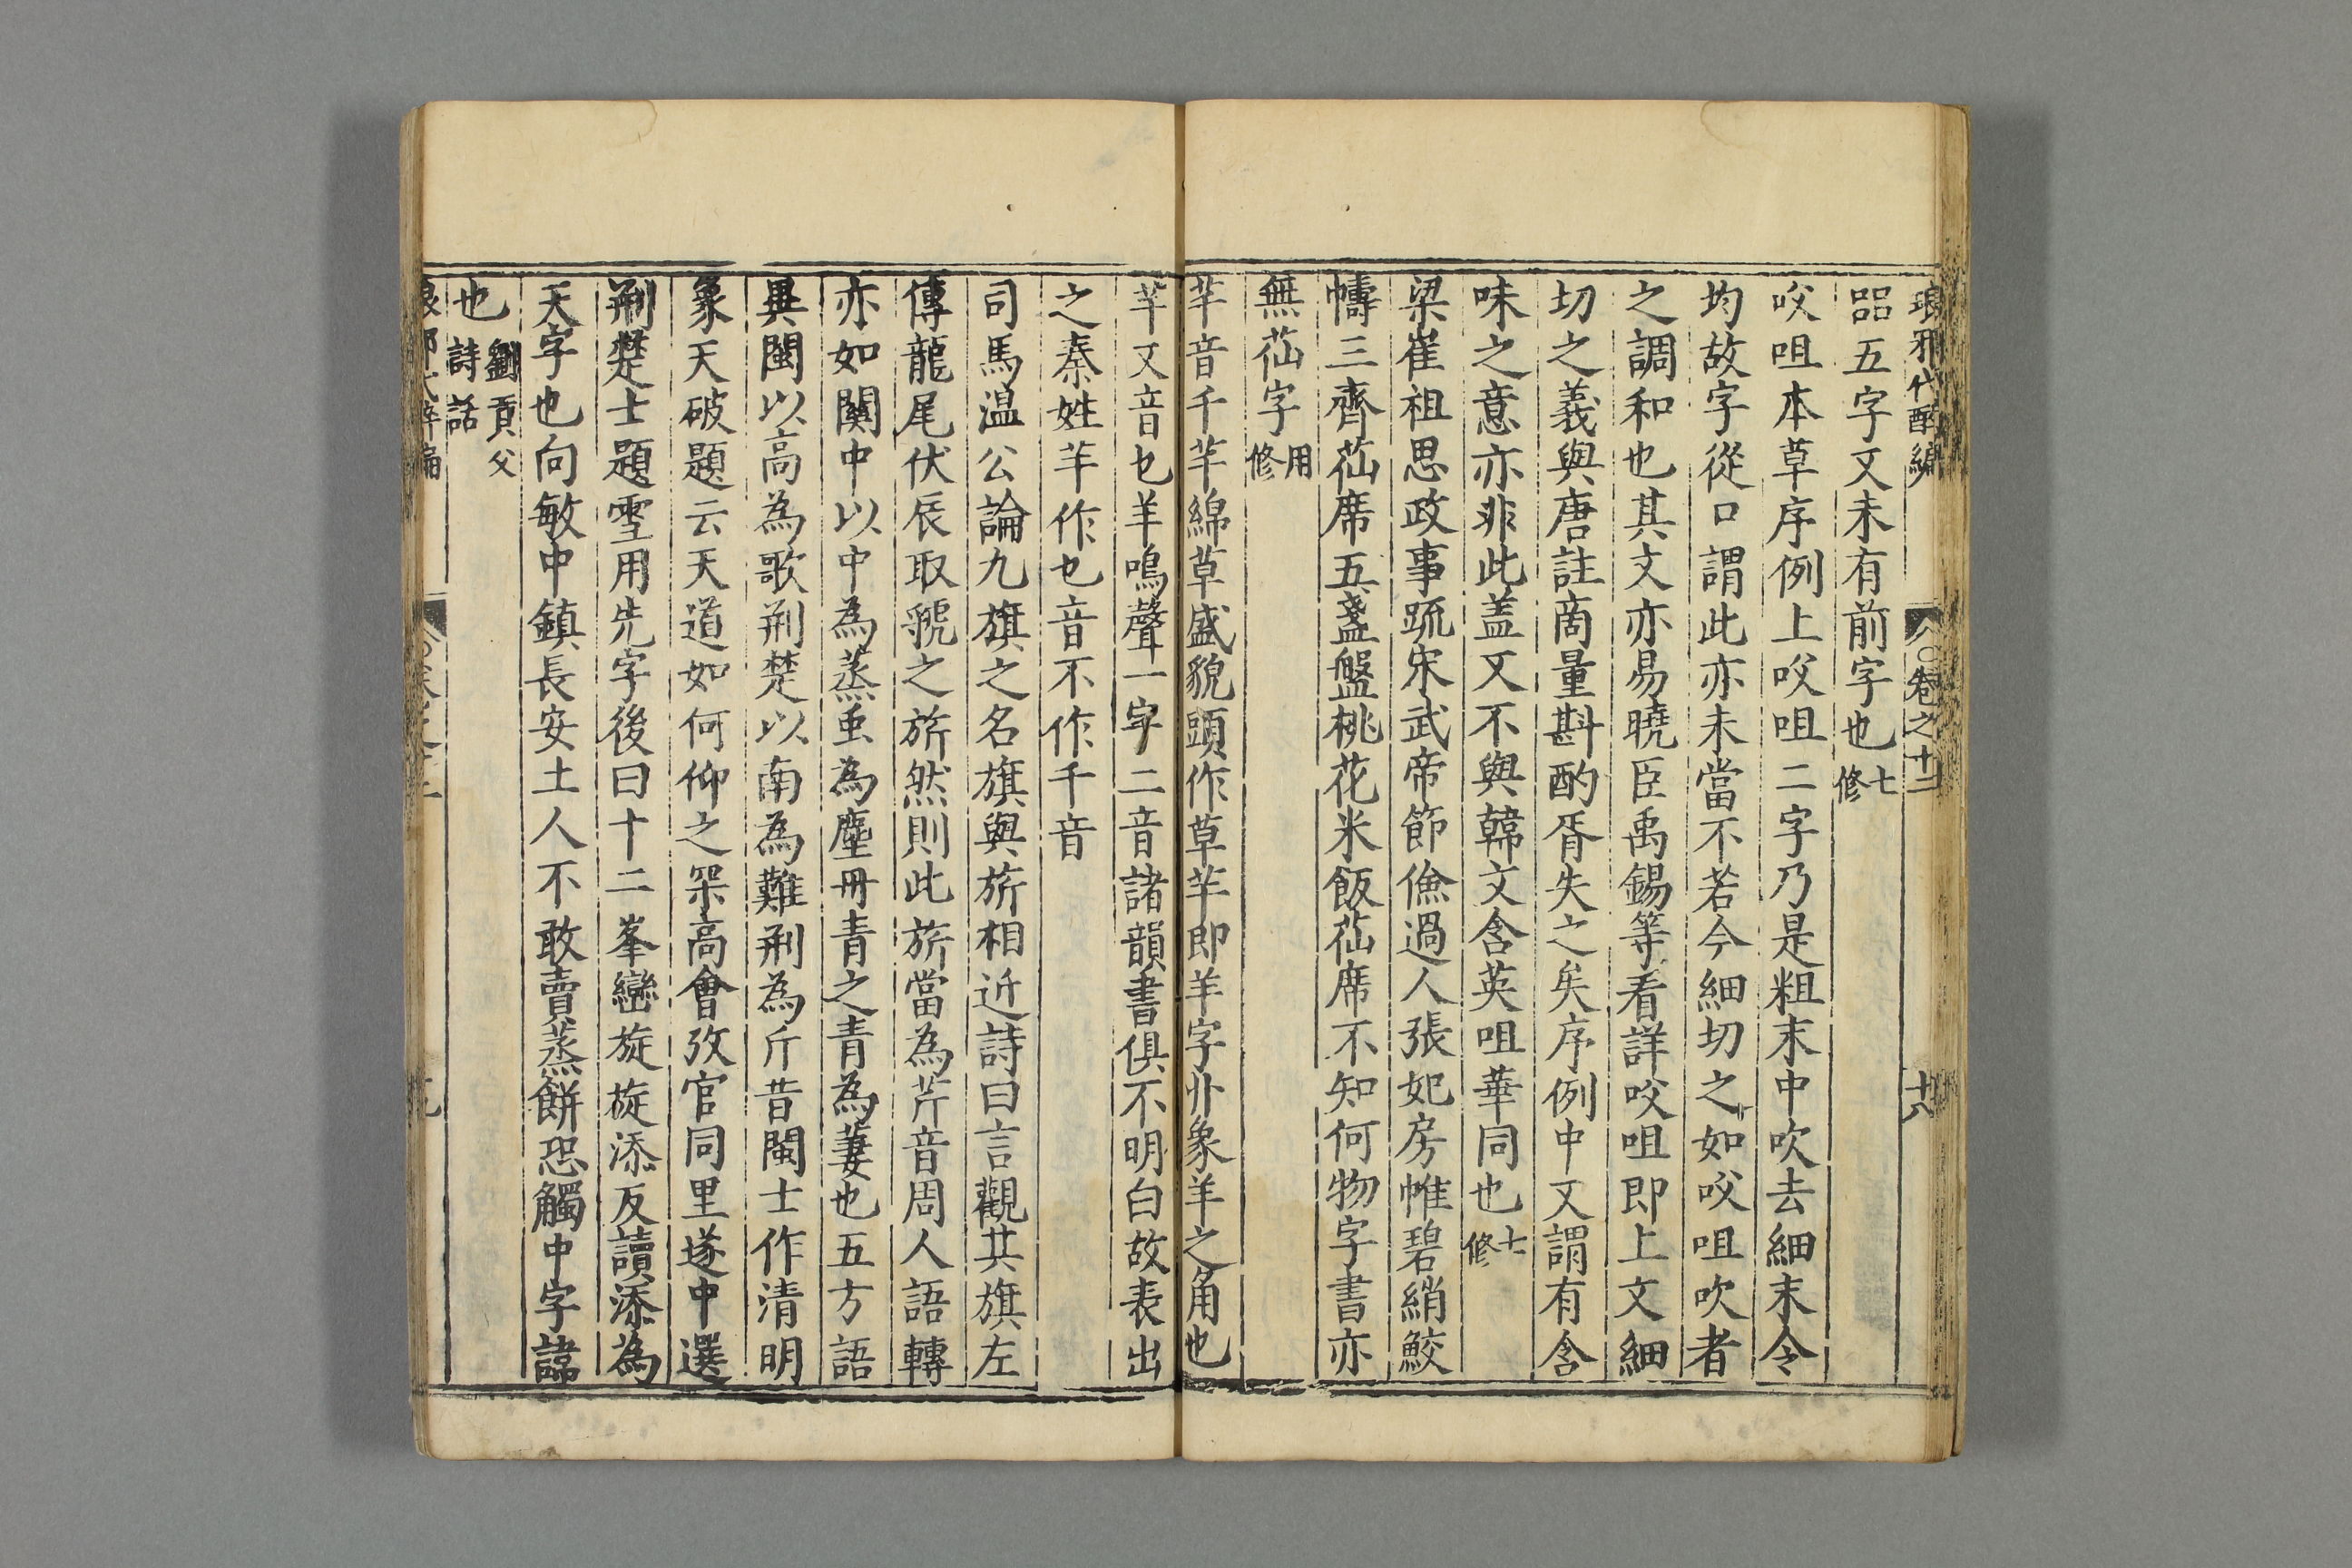 琅邪代醉編 卷之十二 十八
㗊五字文未有前字也 七修
㕮咀本草序例上㕮咀二字乃是粗末中吹去細末令
均故字從口謂此亦未當不若今細切之如㕮咀吹者
之調和也其文亦易曉臣禹錫等看詳㕮咀即上文細
切之義與唐註商量斟酌胥失之矣序例中又謂有含
味之意亦非此盖又不與韓文含英咀華同也 七修
梁崔祖思政事疏宋武帝節儉過人張妃房帷碧綃鮫
幬三齊苮席五盞盤桃花米飯苮席不知何物字書亦
無苮字 用修
芊音千芊綿草盛貌頭作草芊即羊字丱象羊之角也
芊又音乜羊鳴聲一字二音諸韻書俱不明白故表出
之秦姓芊作乜音不作千音
司馬溫公論九旗之名旗與旂相近詩曰言觀其旗左
傳龍尾伏辰取虢之旂然則此旂當為芹音周人語轉
亦如關中以中為蒸虫為塵丹青之青為萋也五方語
異閩以高為歌荆楚以南為難荆為斤昔閩士作清明
象天破題云天道如何仰之罙高會攷官同里遂中選
荆楚士題雪用先字後曰十二峯巒旋旋添反讀添為
天字也向敏中鎮長安土人不敢賣蒸餅恐觸中字諱
也 劉貢父詩話